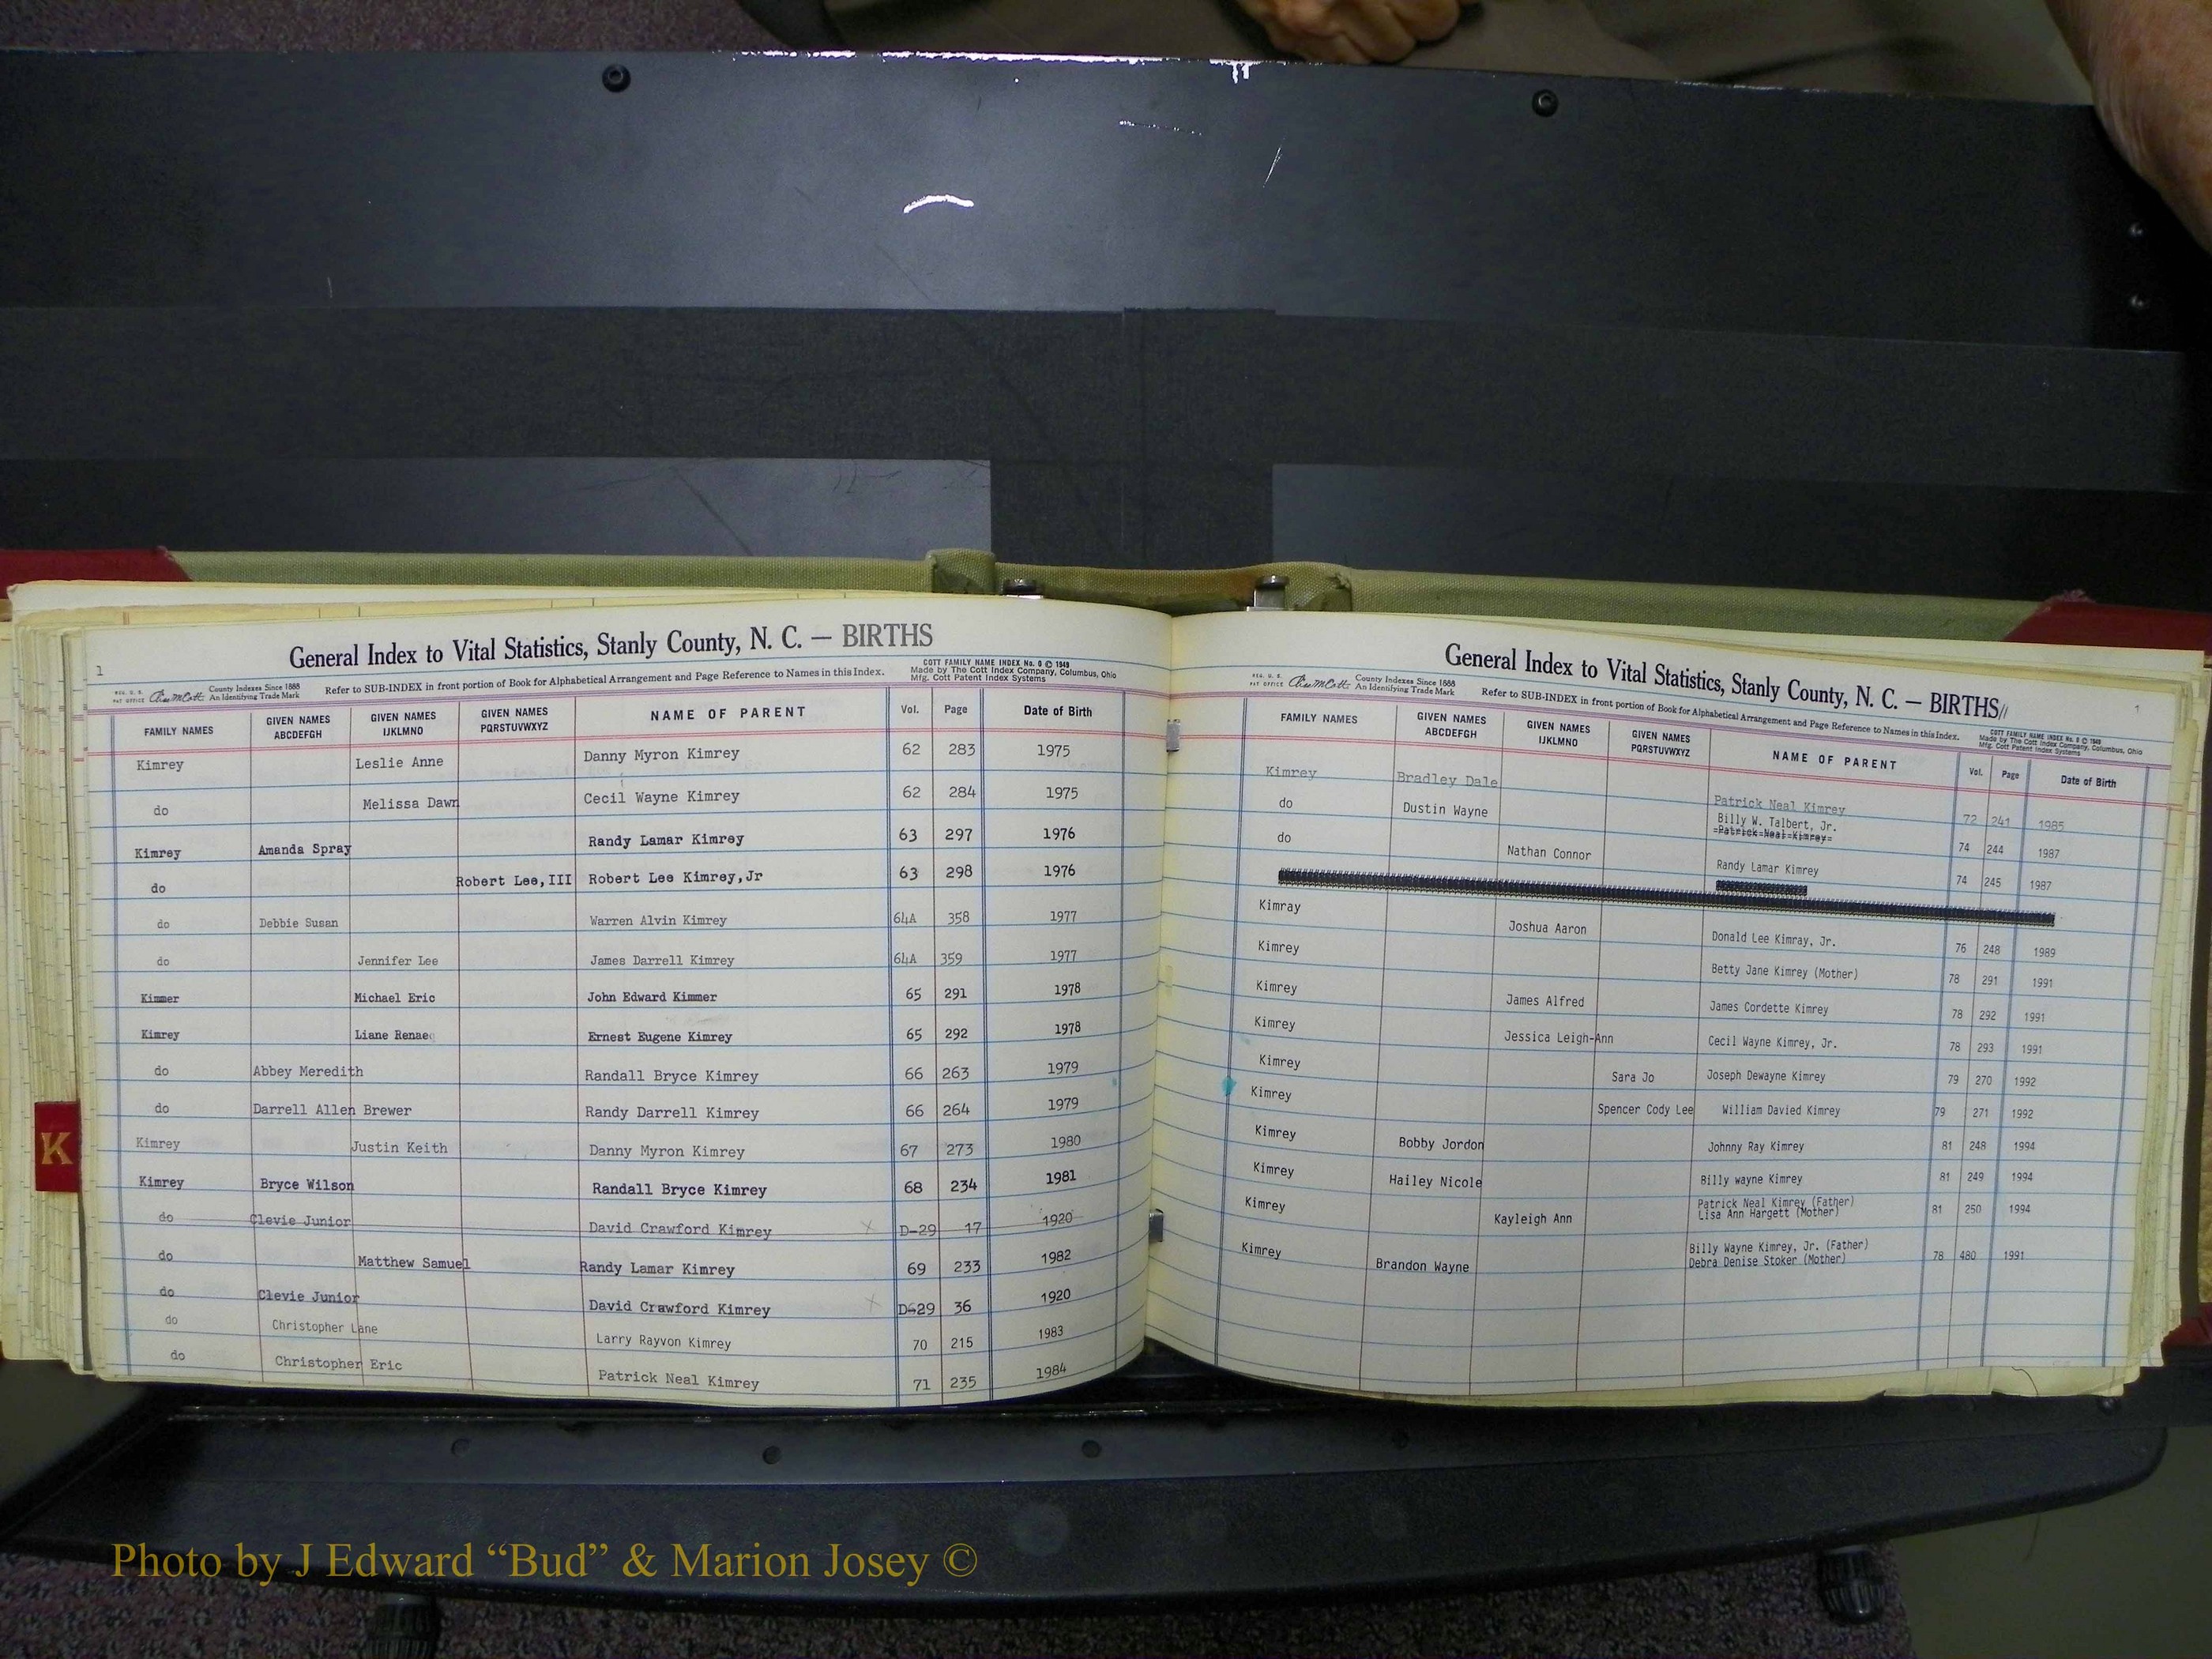 General Index to Vital Statistics, Stanly County, N. C. — BIRTHS
1
COTT FAMILY NAME INDEX No. 0 © 1949
Made by The Cott Index Company, Columbus, Ohio
Mfg. Cott Patent Index Systems
REG. U. S.
PAT OFFICE
County Indexes Since 1888
An Identifying Trade Mark
Refer to SUB-INDEX in front portion of Book for Alphabetical Arrangement and Page Reference to Names in this Index.
FAMILY NAMES GIVEN NAMES ABCDEFGH GIVEN NAMES IJKLMNO GIVEN NAMES PQRSTUVWXYZ NAME OF PARENT Vol. Page Date of Birth
Kimrey Leslie Anne Danny Myron Kimrey 62 283 1975
do Melissa Dawn Cecil Wayne Kimrey 62 284 1975
Kimrey Amanda Spray Randy Lamar Kimrey 63 297 1976
do Robert Lee,III Robert Lee Kimrey,Jr 63 298 1976
do Debbie Susan Warren Alvin Kimrey 64A 358 1977
do Jennifer Lee James Darrell Kimrey 64A 359 1977
Kimmer Michael Eric John Edward Kimmer 65 291 1978
Kimrey Liane Renae Ernest Eugene Kimrey 65 292 1978
do Abbey Meredith Randall Bryce Kimrey 66 263 1979
do Darrell Allen Brewer Randy Darrell Kimrey 66 264 1979
Kimrey Justin Keith Danny Myron Kimrey 67 273 1980
Kimrey Bryce Wilson Randall Bryce Kimrey 68 234 1981
do Clevie Junior David Crawford Kimrey X D-29 17 1920
do Matthew Samuel Randy Lamar Kimrey 69 233 1982
do Clevie Junior David Crawford Kimrey X D-29 36 1920
do Christopher Lane Larry Rayvon Kimrey 70 215 1983
do Christopher Eric Patrick Neal Kimrey 71 235 1984
K
General Index to Vital Statistics, Stanly County, N. C. — BIRTHS//
1
REG. U. S.
PAT OFFICE
County Indexes Since 1888
An Identifying Trade Mark
Refer to SUB-INDEX in front portion of Book for Alphabetical Arrangement and Page Reference to Names in this Index.
COTT FAMILY NAME INDEX No. 0 © 1949
Made by The Cott Index Company, Columbus, Ohio
Mfg. Cott Patent Index Systems
FAMILY NAMES GIVEN NAMES ABCDEFGH GIVEN NAMES IJKLMNO GIVEN NAMES PQRSTUVWXYZ NAME OF PARENT Vol. Page Date of Birth
Kimrey Bradley Dale Patrick Neal Kimrey 72 241 1985
do Dustin Wayne Billy W. Talbert, Jr.
=Patrick=Neal=Kimrey= 74 244 1987
do Nathan Connor Randy Lamar Kimrey 74 245 1987
Kimray Joshua Aaron Donald Lee Kimray, Jr. 76 248 1989
Kimrey Betty Jane Kimrey (Mother) 78 291 1991
Kimrey James Alfred James Cordette Kimrey 78 292 1991
Kimrey Jessica Leigh-Ann Cecil Wayne Kimrey, Jr. 78 293 1991
Kimrey Sara Jo Joseph Dewayne Kimrey 79 270 1992
Kimrey Spencer Cody Lee William Davied Kimrey 79 271 1992
Kimrey Bobby Jordon Johnny Ray Kimrey 81 248 1994
Kimrey Hailey Nicole Billy wayne Kimrey 81 249 1994
Kimrey Kayleigh Ann Patrick Neal Kimrey (Father)
Lisa Ann Hargett (Mother) 81 250 1994
Kimrey Brandon Wayne Billy Wayne Kimrey, Jr. (Father)
Debra Denise Stoker (Mother) 78 480 1991
Photo by J Edward “Bud” & Marion Josey ©